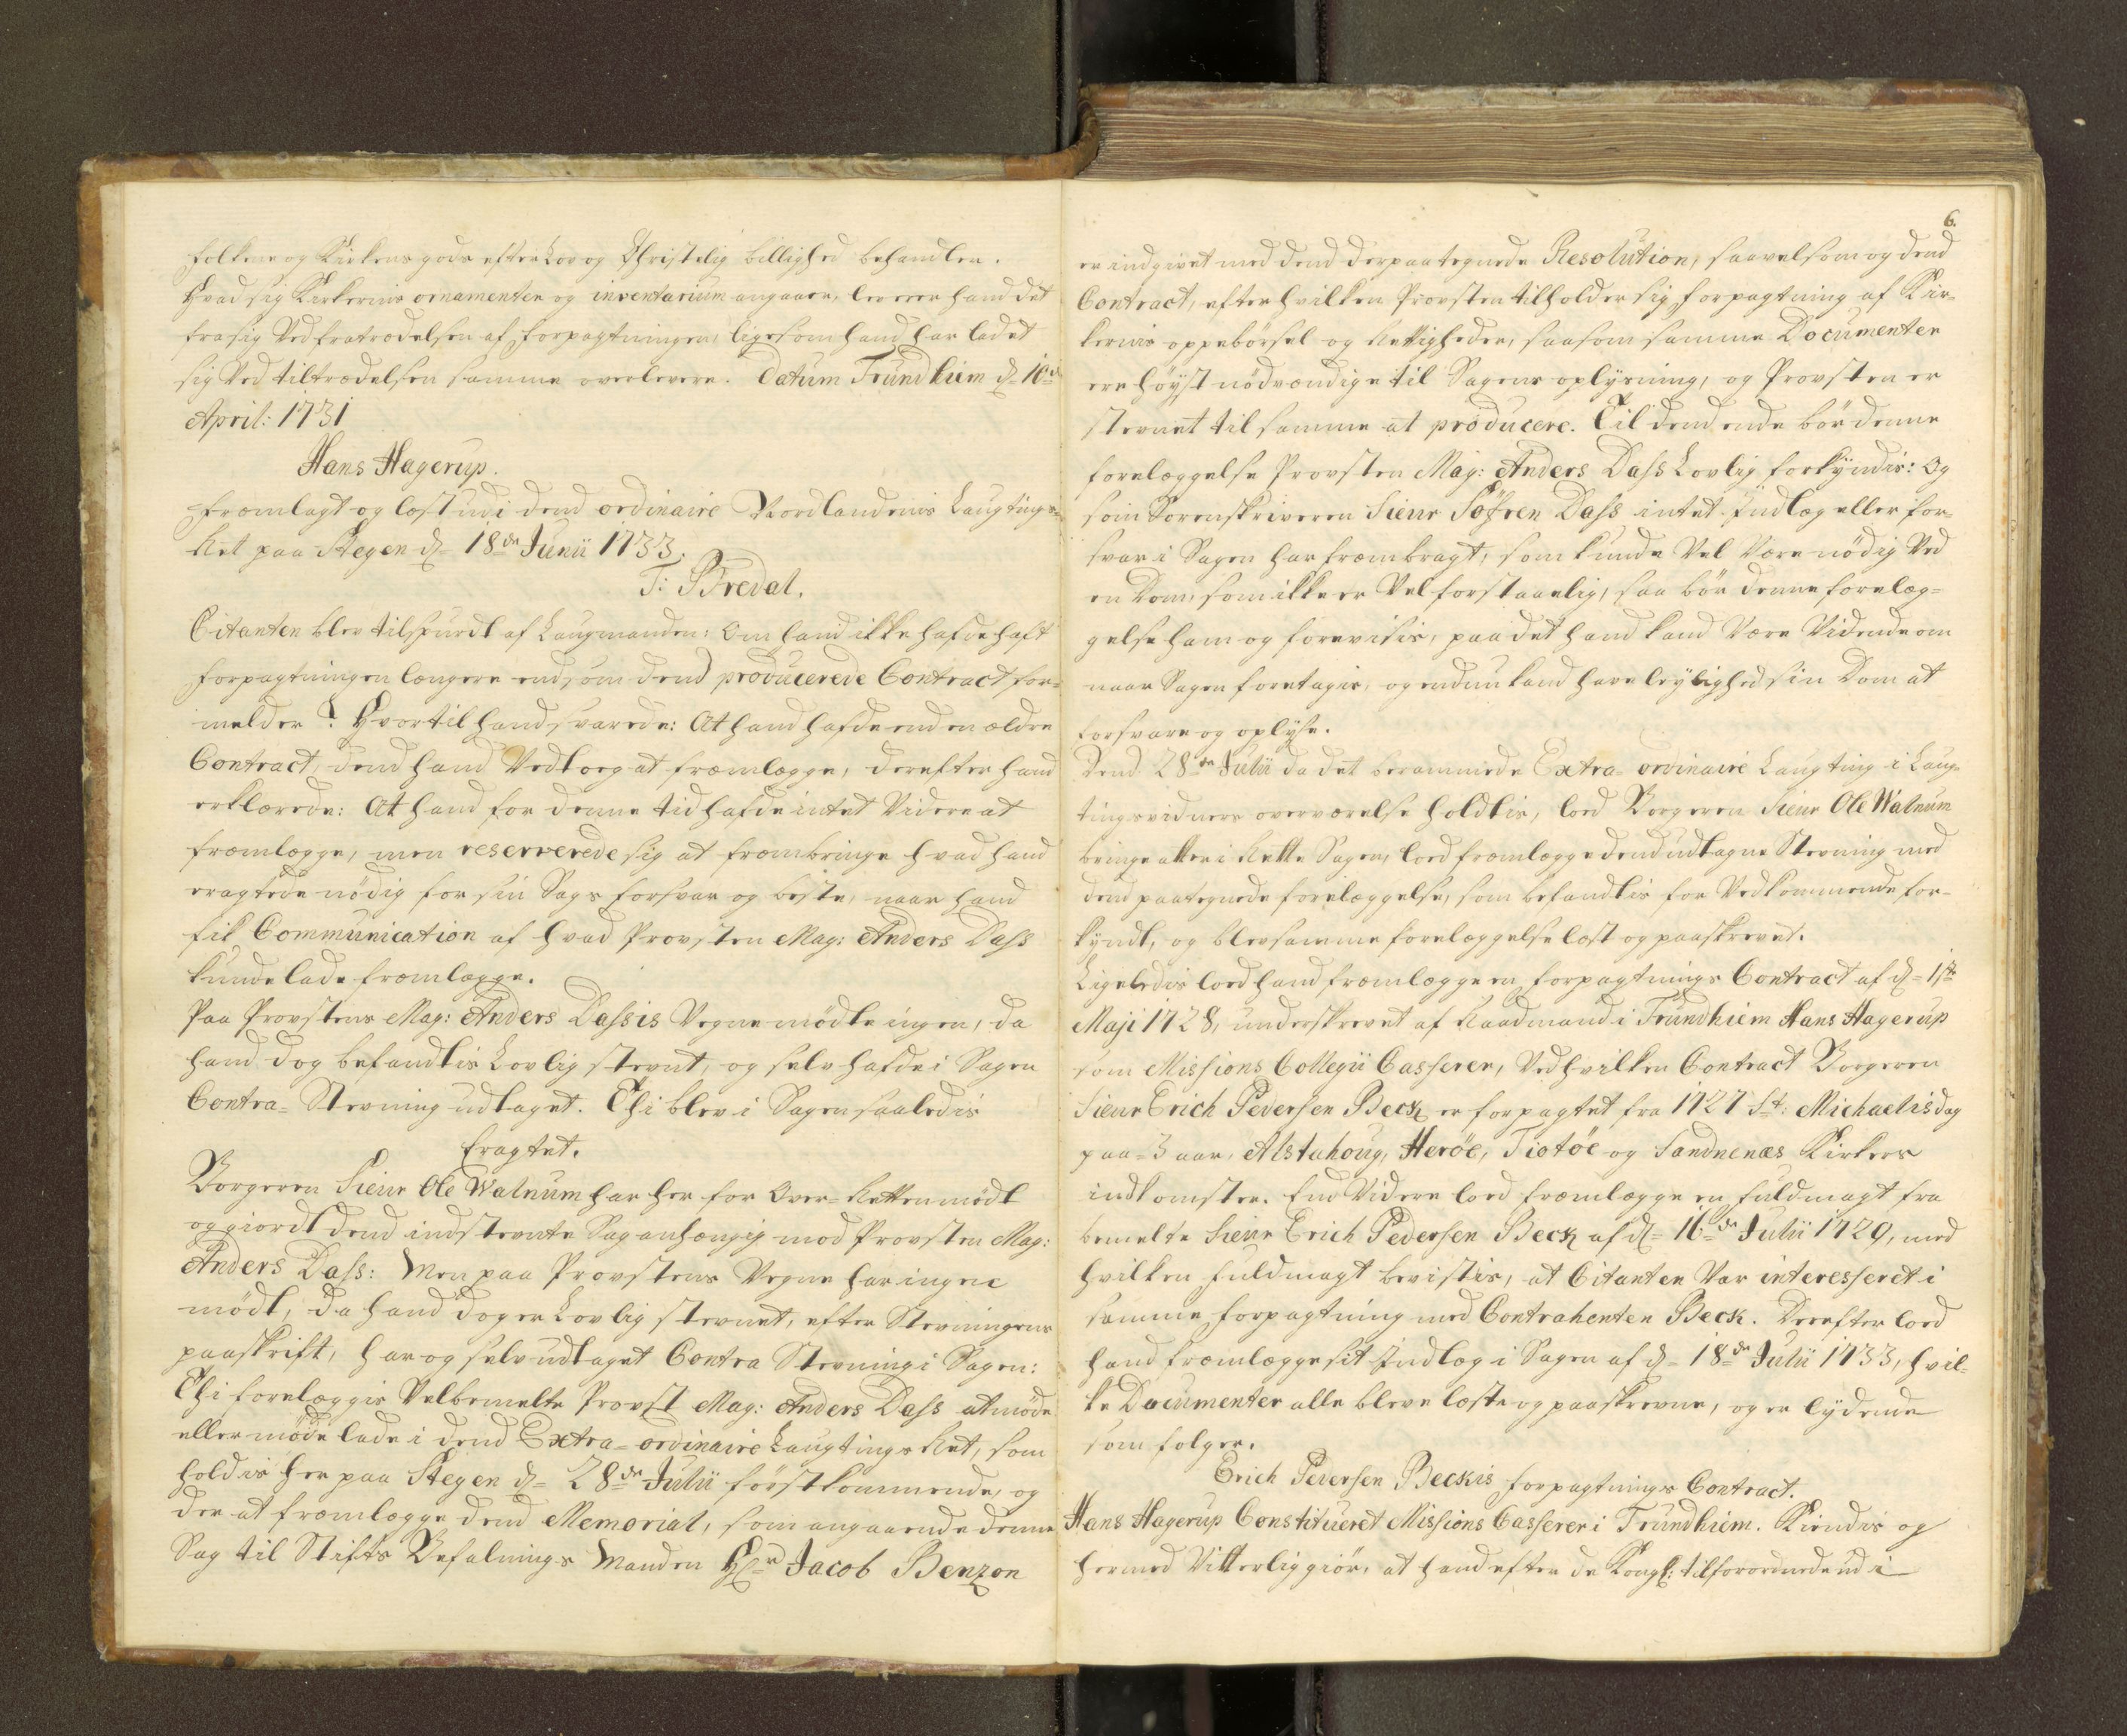 folkene og Kirkens gods efter Lov og Christelig billighed behandler.
Hvad sig Kirkernis ornamenter og inventarium angaaer, leverer hand det
fra sig ved fratrædelsen af forpagtningen, ligesom hand har ladet
sig ved tiltrædelsen samme overlevere. Datum Trundhiem d= 10de
April: 1731
Hans Hagerup.
Fremlagt og læst udi dend ordinaire Nordlandenis Laugtings
Ret paa Stegen d= 18de Junii 1733.
T: Bredal.
Citanten blev tilspurdt af Laugmanden: Om hand ikke hafde haft
forpagtningen længere end, som dend producerede Contract for-
melder? Hvortil hand svarede: At hand hafde end en ældre
Contract, dend hand vedtoeg at fremlægge, derefter hand
erklærede: At hand for denne tid hafde intet videre at
fremlægge, men reserverede sig at frembringe hvad hand
eragtede nödig for sin Sags forsvar og beste, naar hand
fik Communication af hvad Provsten Mag: Anders Dass
kunde lade fremlægge.
Paa Provstens Mag: Anders Dassis Vegne mödte ingen, da
hand dog befandtis Lovlig stevnt, og selv hafde i Sagen
Contra= Stevning udtaget. Thi blev i Sagen saaledis
Eragtet.
Borgeren Sieur Ole Walnum har her for Over= Retten mödt
og giordt dend indstevnte Sag anhængig mod Provsten Mag:
Anders Dass: Men paa Provstens Vegne har ingen
mödt, da hand dog er Lovlig stevnet, efter Stevningens
paaskrift, har og selv udtaget Contra Stevning i Sagen:
Thi forelæggis Velbemelte Provst Mag: Anders Dass at möde
eller möde lade i dend Extra=ordinaire Laugtings Ret, som
holdis her paa Stegen d= 28de Julii förstkommende, og
der at fremlægge dend Memorial, som angaaende denne
Sag til Stifts Befalnings Manden Hr Jacob Benzon
6.
er indgivet med dend derpaa tegnede Resolution, saavelsom og dend
Contract, efter hvilken Provsten tilholder sig forpagtning af Kir-
kernis oppebörsel og Rettigheder, saasom samme Documenter
ere höyst nödvendige til Sagens oplysning, og Provsten er
stevnet til samme at producere. Til dend ende bör denne
forelæggelse Provsten Mag: Anders Dass Lovlig forkyndis: Og
som Sorenskriveren Sieur Söfren Dass intet Indlæg eller for-
svar i Sagen har frembragt, som kunde vel være nödig ved
en Dom, som ikke er vel forstaaelig, saa bör denne forelæg-
gelse ham og forevisis, paa det hand kand være vidende om
naar Sagen foretagis, og endnu kand have leylighed sin Dom at
forsvare og oplyse.
Dend 28de Julii da det berammede Extra=ordinaire Laugting i Laug-
tingsvidners overværelse holdtis, loed Borgeren Sieur Ole Walnum
bringe atter i Rette Sagen, loed fremlægge dend udtagne Stevning med
dend paategnede forelæggelse, som befandtis for Vedkommende for-
kyndt, og blev samme forelæggelse læst og paaskrevet.
Ligeledis loed hand fremlægge en forpagtnings Contract af d= 1ste
Maji 1728, underskrevet af Raadmand i Trundhiem Hans Hagerup
som Missions Collegii Casserer, ved hvilken Contract Borgeren
Sieur Erich Pedersen Beck er forpagtet fra 1727 St: Michaelis dag
paa= 3 aar, Alstahoug, Heröe, Tiotöe og Sandnenæs Kirkers
indkomster. End videre loed fremlægge en fuldmagt fra
bemelte Sieur Erich Pedersen Beck af d= 16de Julii 1729, med
hvilken fuldmagt bevistis, at Citanten var interesseret i
samme forpagtning med Contrahenten Beck. Derefter loed
hand fremlægge sit Indlæg i Sagen af d= 18de Julii 1733, hvil-
ke Documenter alle bleve læste og paaskrevne, og er lydende
som fölger.
Erich Pedersen Beckis forpagtnings Contract.
Hans Hagerup Constitueret Missions Casserer i Trundhiem. Kiendis og
hermed vitterliggiör, at hand efter de Kongl: tilforordnede udi